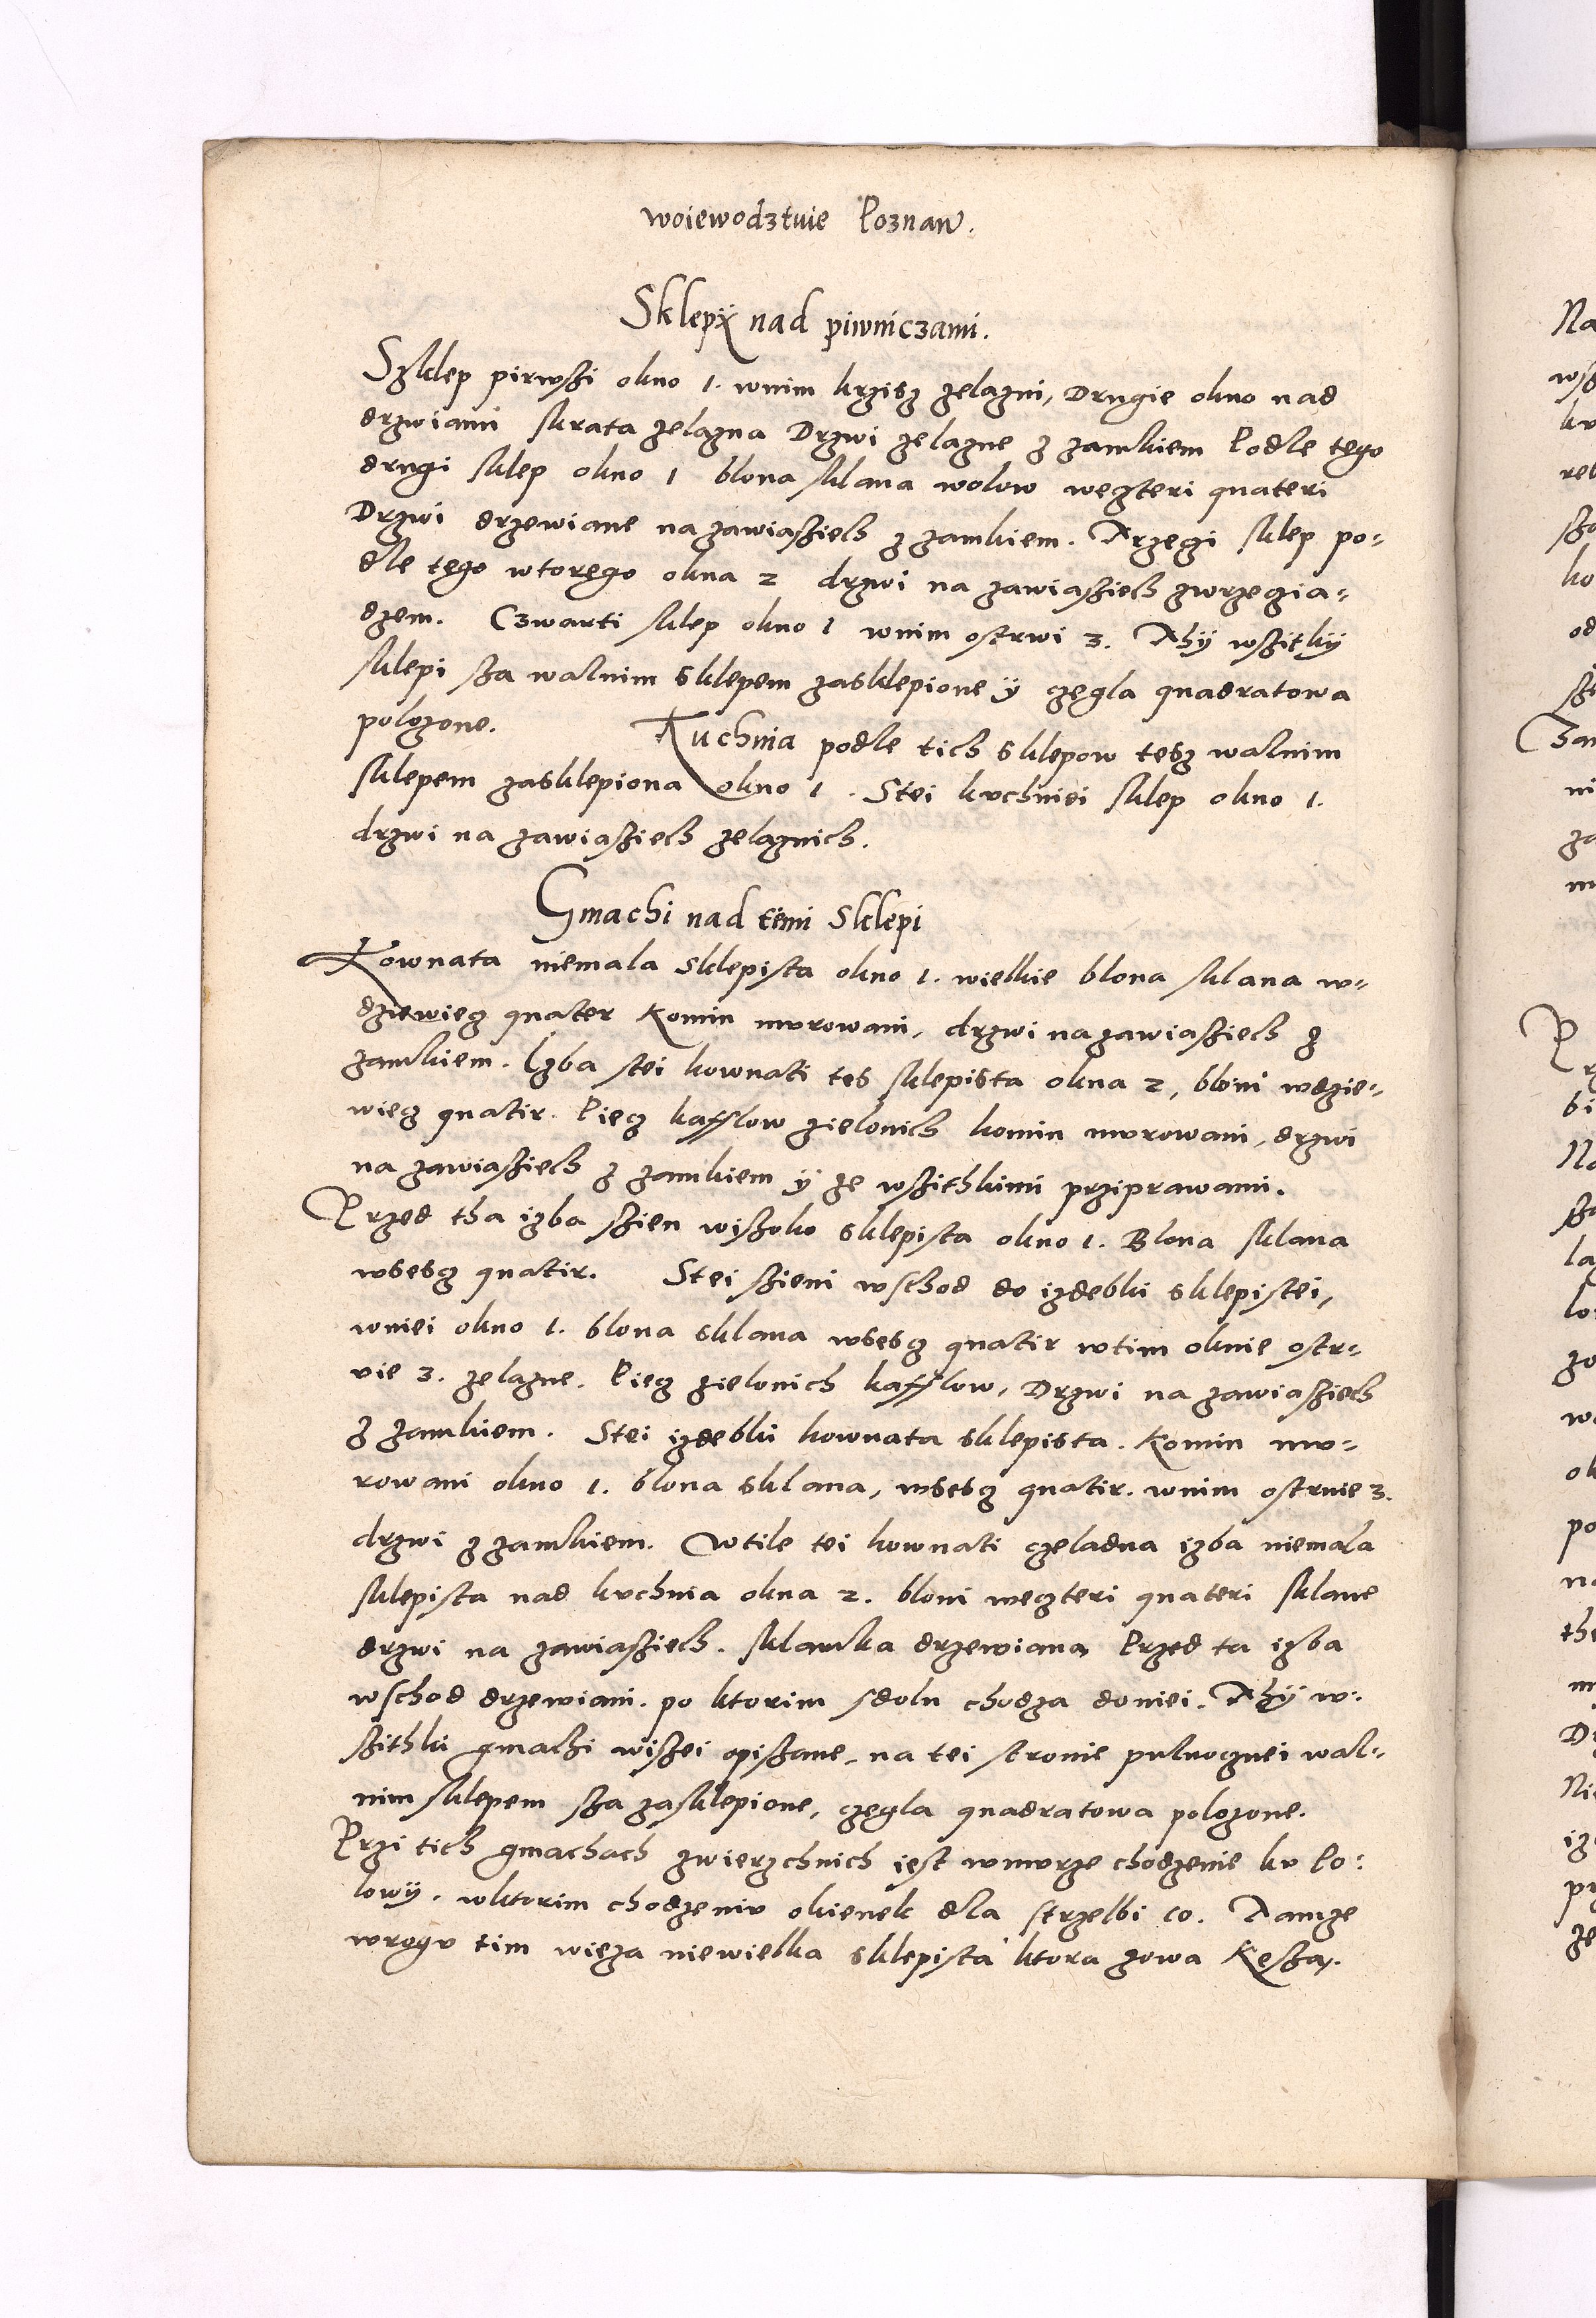 woiewodztwie Poznan.
Sklepÿ nad piwniczami.
Szklep pirwszi okno 1. wnim krzisz zelazni, Drugie okno nad
drzwiami skrata zelazna Drzwi zelazne z zamkiem Podle tego
drugi sklep okno 1 blona sklana wolow wezteri quateri
Drzwi drzewiane na zawiasziech z zamkiem. Trzeci sklep po-
dle tego wtorego okna 2 drzwi na zawiasziech zwrzecia-
dzem. Czwarti sklep okno 1 wnim ostrwi 3. Thÿ wszitkÿ
sklepi sza walnim sklepem zasklepione ÿ czegla quadratowa
polozone. Kuchnia podle tich sklepow tesz walnim
sklepem zasklepiona okno 1. Stei kuchniei sklep okno 1.
drzwi na zawiasziech zelaznich.
Gmachi nad temi sklepi
Kownata niemala sklepista okno 1. wielkie blona sklana w-
dziewiec quater Komin mvrowani, drzwi na zawiasziech z
zamkiem. Izba stei kownati tes sklepista okna 2, bloni wdzie-
wiec quatir. Piec kafflow zielonich komin mvrowani, drzwi
na zawiasziech z zamkiem ÿ ze wszithkimi prziprawami.
Przed tha izba szien wiszoko sklepista okno 1. Blona sklana
wsesc quatir. Stei szieni wschod do izdebki sklepistei,
wniei okno 1. blona sklana wsesc quatir wtim oknie ostr-
vie 3. zelazne. Piec zielonich kafflow, Drzwi na zawiasziech
z zamkiem. Stei izdebki kownata sklepista. Komin mv-
rowani okno 1. blona sklana, wsesc quatir. wnim ostrwie 3.
drzwi z zamkiem. Wtile tei kownati czeladna izba niemala
sklepista nad kvchnia okna 2. bloni wezteri quateri sklane
drzwi na zawiasziech. sklamka drzewiana Przed ta izba
wschod drzewiani. po ktorim sdolu chodza doniei. Thÿ w-
szithki gmachi wiszei opiszane, na tei stronie pulnocznei wal-
nim sklepem sza zasklepione, czegla quadratowa polozone.
Przi tich gmachach zwierzchnich iest wmvrze chodzenie kv Po-
lowÿ. wktorim chodzeniv okienek dla strzelbi 10. Tamze
wrogv tim wieza niewielka sklepista ktora zowa Kesza.